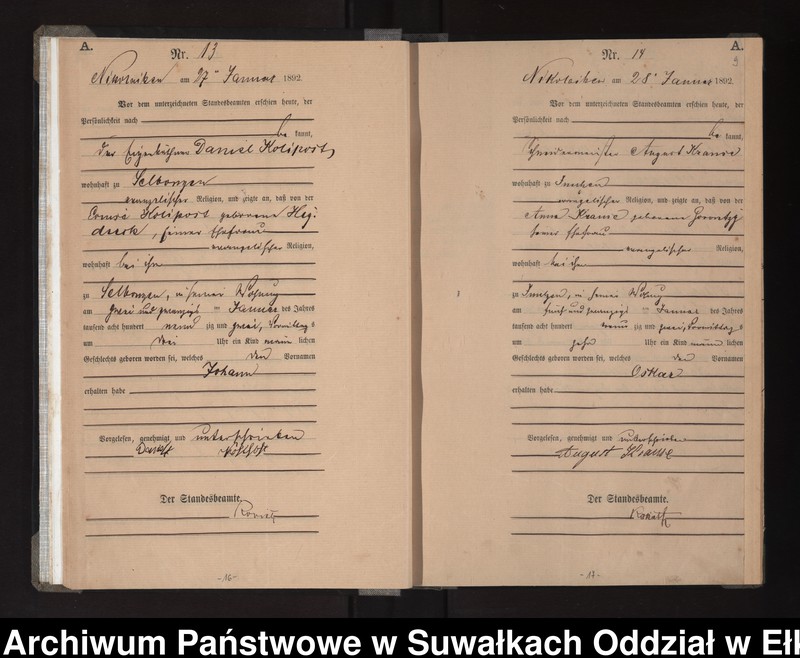 A.
Nr. 13
am 27 Januar 1892.
Vor dem unterzeichneten Standesbeamten erschien heute, der
Persönlichkeit nach
be kannt,
der Daniel
wohnhaft zu
evangelischer Religion, und zeigte an, daß von der
geborene
seiner Ehefrau
evangelischer Religion,
wohnhaft bei ihm
zu in seiner Wohnung
am zwei und zwanzigsten Januar des Jahres
tausend acht hundert neun zig und zwei, Vormittags
um drei Uhr ein Kind männlichen
Geschlechts geboren worden sei, welches den Vornamen
Johann
erhalten habe
Vorgelesen, genehmigt und unterschrieben
Der Standesbeamte.
- 16 -
A.
Nr. 14
am 28 Januar 1892.
Vor dem unterzeichneten Standesbeamten erschien heute, der
Persönlichkeit nach
be kannt,
Schneidermeister August Krause
wohnhaft zu
evangelischer Religion, und zeigte an, daß von der
Anna Krause geborene
seiner Ehefrau
evangelischer Religion,
wohnhaft bei ihm
zu in seiner Wohnung
am fünf und zwanzigsten Januar des Jahres
tausend acht hundert neun zig und zwei, Vormittags
um zehn Uhr ein Kind männ lichen
Geschlechts geboren worden sei, welches den Vornamen
Oskar
erhalten habe
Vorgelesen, genehmigt und unterschrieben
August Krause
Der Standesbeamte.
- 17 -
Archiwum Państwowe w Suwałkach Oddział w Ełk